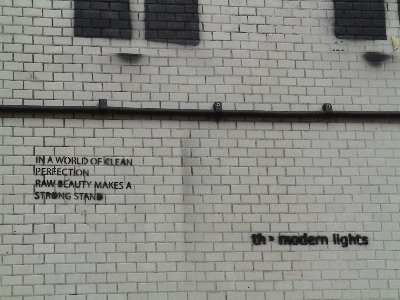 IN A WORLD OF CLEAN
PERFECTION
RAW BEAUTY MAKES A
STRONG STAND
modern lights